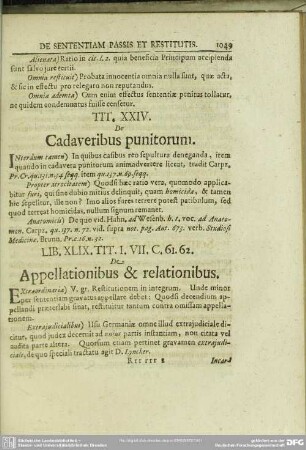 DE SENTENTIAM PASSIS ET RESTITUTIS. 1049
Alienata) Ratio in cit. l. 2. quia beneficia Principum accipienda
sunt salvo jure tertii.
Omnia restituit) Probata innocentia omnia nulla sunt, quæ acta,
& sic in effectu pro relegato non reputandus.
Omnia ademta) Cum enim effectus sententiæ penitus tollatur,
ne quidem condemnatus fuisse censetur.
TIT. XXIV.
De
Cadaveribus punitorum.
INterdum tamen) In quibus casibus reo sepultura deneganda, item
quando in cadavera punitorum animadvertere liceat, tradit Carpz.
Pr. Cr. seqq. item
Propter atrocitatem) Quodsi hæc ratio vera, quomodo applicabitur
furi, qui sine dubio mitius delinquit, quam homicida, & tamen
hic sepelitur, ille non? Imo alios fures terrere potest patibulum, sed
quod terreat homicidas, nullum signum remanet.
Anatomicis) De quo vid. Hahn. ad Wesenb. h. t. voc. ad Anatomen.
Carpz. qu. 137. n. 72. vid. supra not. pag. Aut. 675. verb. Studiosi
Medicinæ. Brunn.
LIB. XLIX. TIT. I. VII. C. 61. 62.
De
Appellationibus & relationibus.
EXtraordinaria) V. gr. Restitutionem in integrum. Unde minor
per sententiam gravatus appellare debet: Quodsi decendium appellandi
præterlabi sinat, restituitur tantum contra omissam appellationem.
Extrajudicialibus) Usu Germaniæ omne illud extrajudiciale dicitur,
quod judex decernit ad unius partis instantiam, non citata vel
audita parte altera. Quorsum etiam pertinet gravamen extrajudiciale,
de quo speciali tractatu agit D. Lyncker.
Rrr rrr 2 Incerd